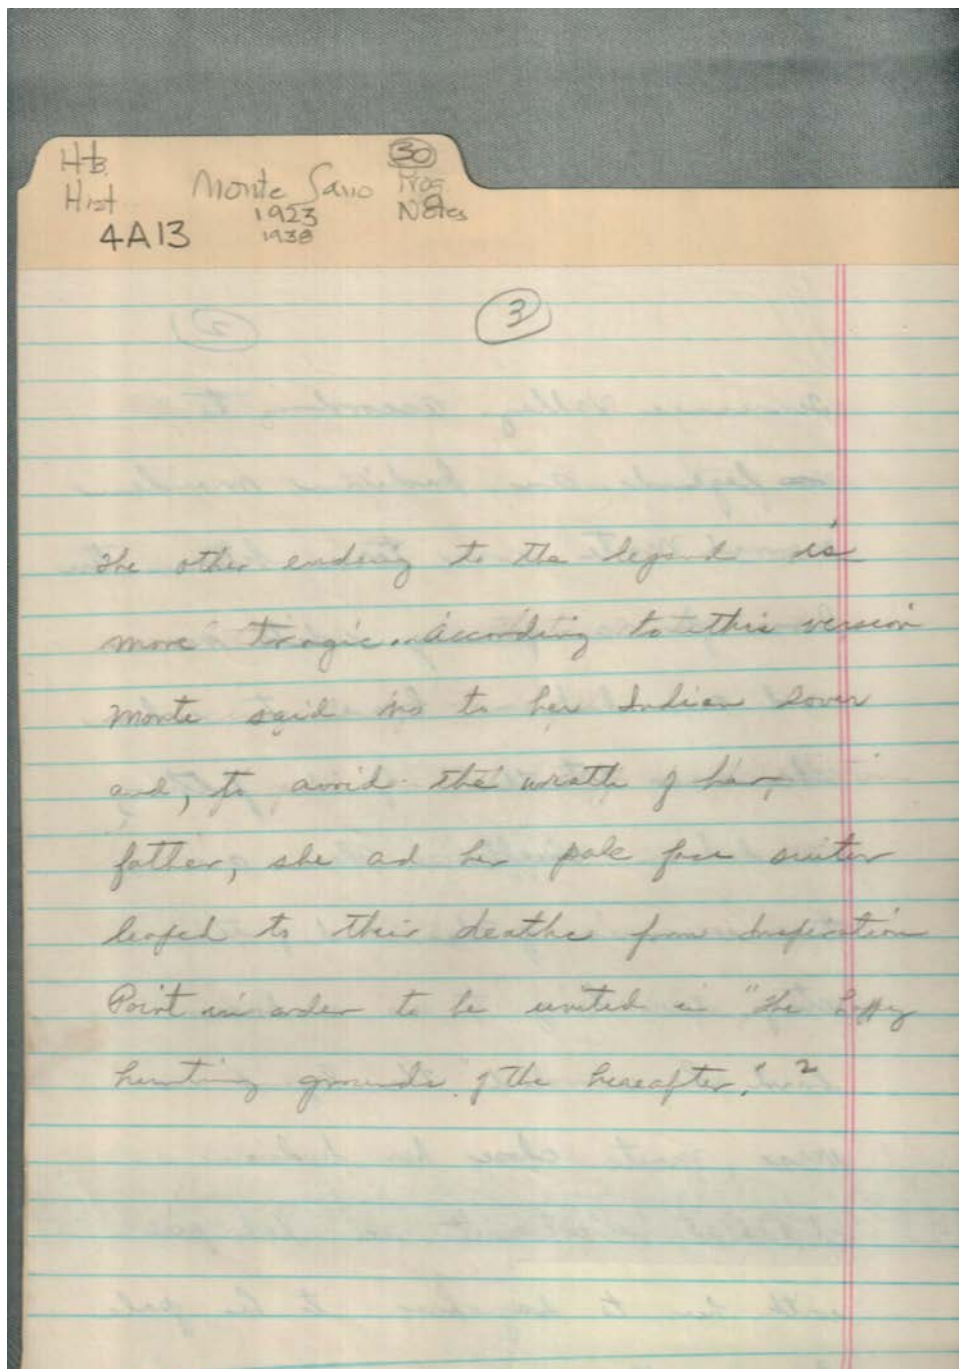 Htb.
Hist
4A13
Monte Sano
1923
1938
30
Prog
Notes
3
The other ending to the legend is
more tragic. According to this version
Monte said no to her Indian lover
and, to avoid the wrath of her,
father, she ad her pale face suitor
leaped to their deaths from Inspiration
Point in order to be united in "the happy
hunting grounds of the hereafter." 2